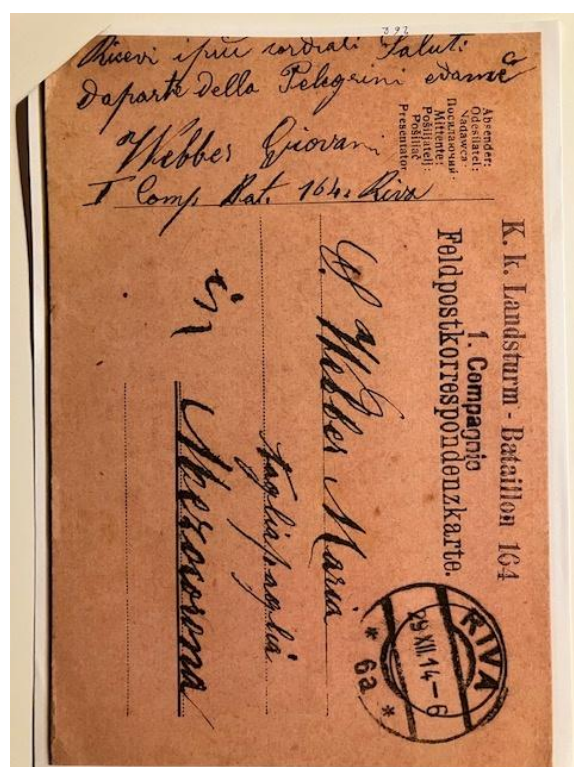 Ricevi i piu cordiali Saluti
daparte della Pelegrini edame
Webber Giovani
I Comp. Bat. 164. Riva
Absender:
Odesílatel:
Nadawca:
Посилаючий:
Mittente:
Pošiljatelj:
Pošiljač
Presentator
K. k. Landsturm - Bataillon 164
1. Compagnie
Feldpostkorrespondenzkarte.
S. Webber Maria
Tagliapaglia
in Mezocorona
RIVA
29 XII. 14 - 6
* 6a *